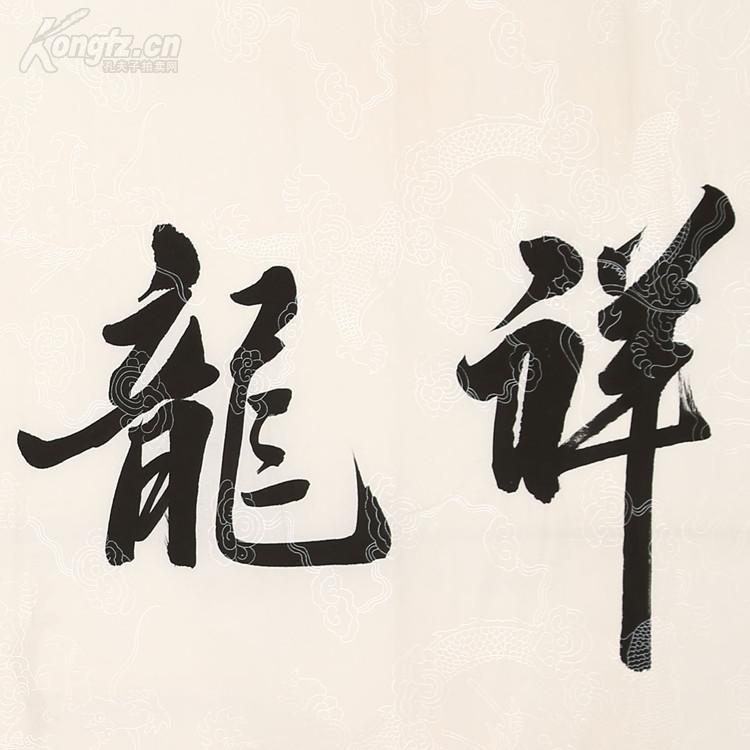 Kongfz.cn
孔夫子拍卖网
祥龍